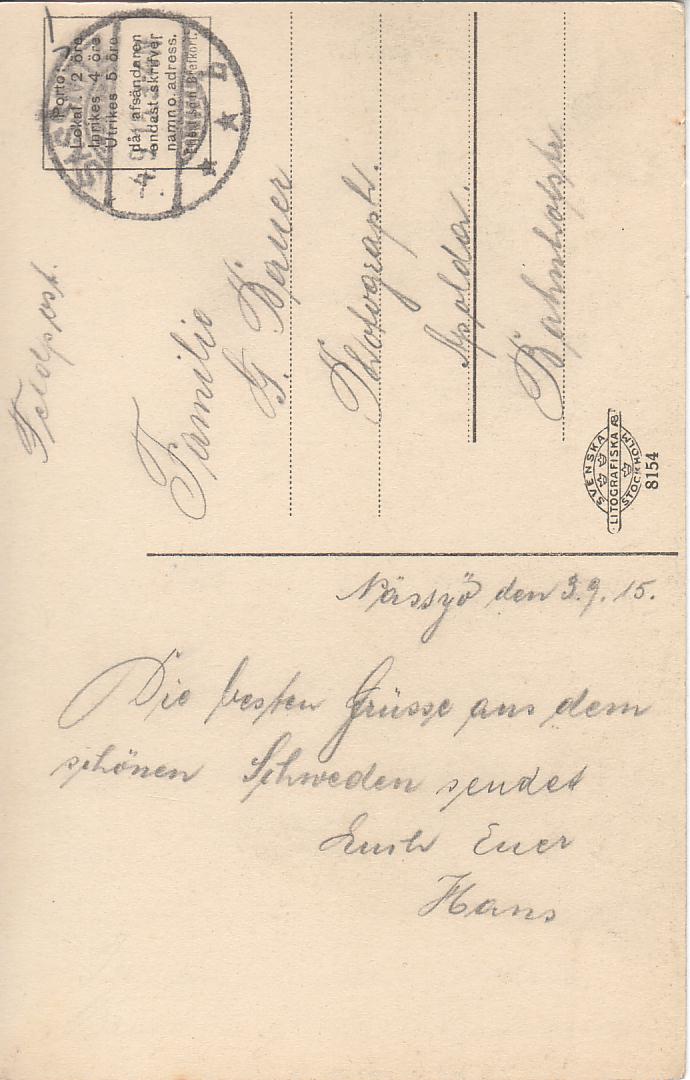 Feldpost.
Porto:
Lokal. 2 öre
Inrikes 4 öre
Utrikes 5 öre
då afsändaren
endast skrifver
namn o. adress.
Familie
G. Döner
Photograph.
Apolda.
Bahnhofstr
SVENSKA
LITOGRAFISKA AB
STOCKHOLM
8154
Nässjö den 3.9.15.
Die besten Grüsse aus dem
schönen Schweden sendet
Euch Euer
Hans